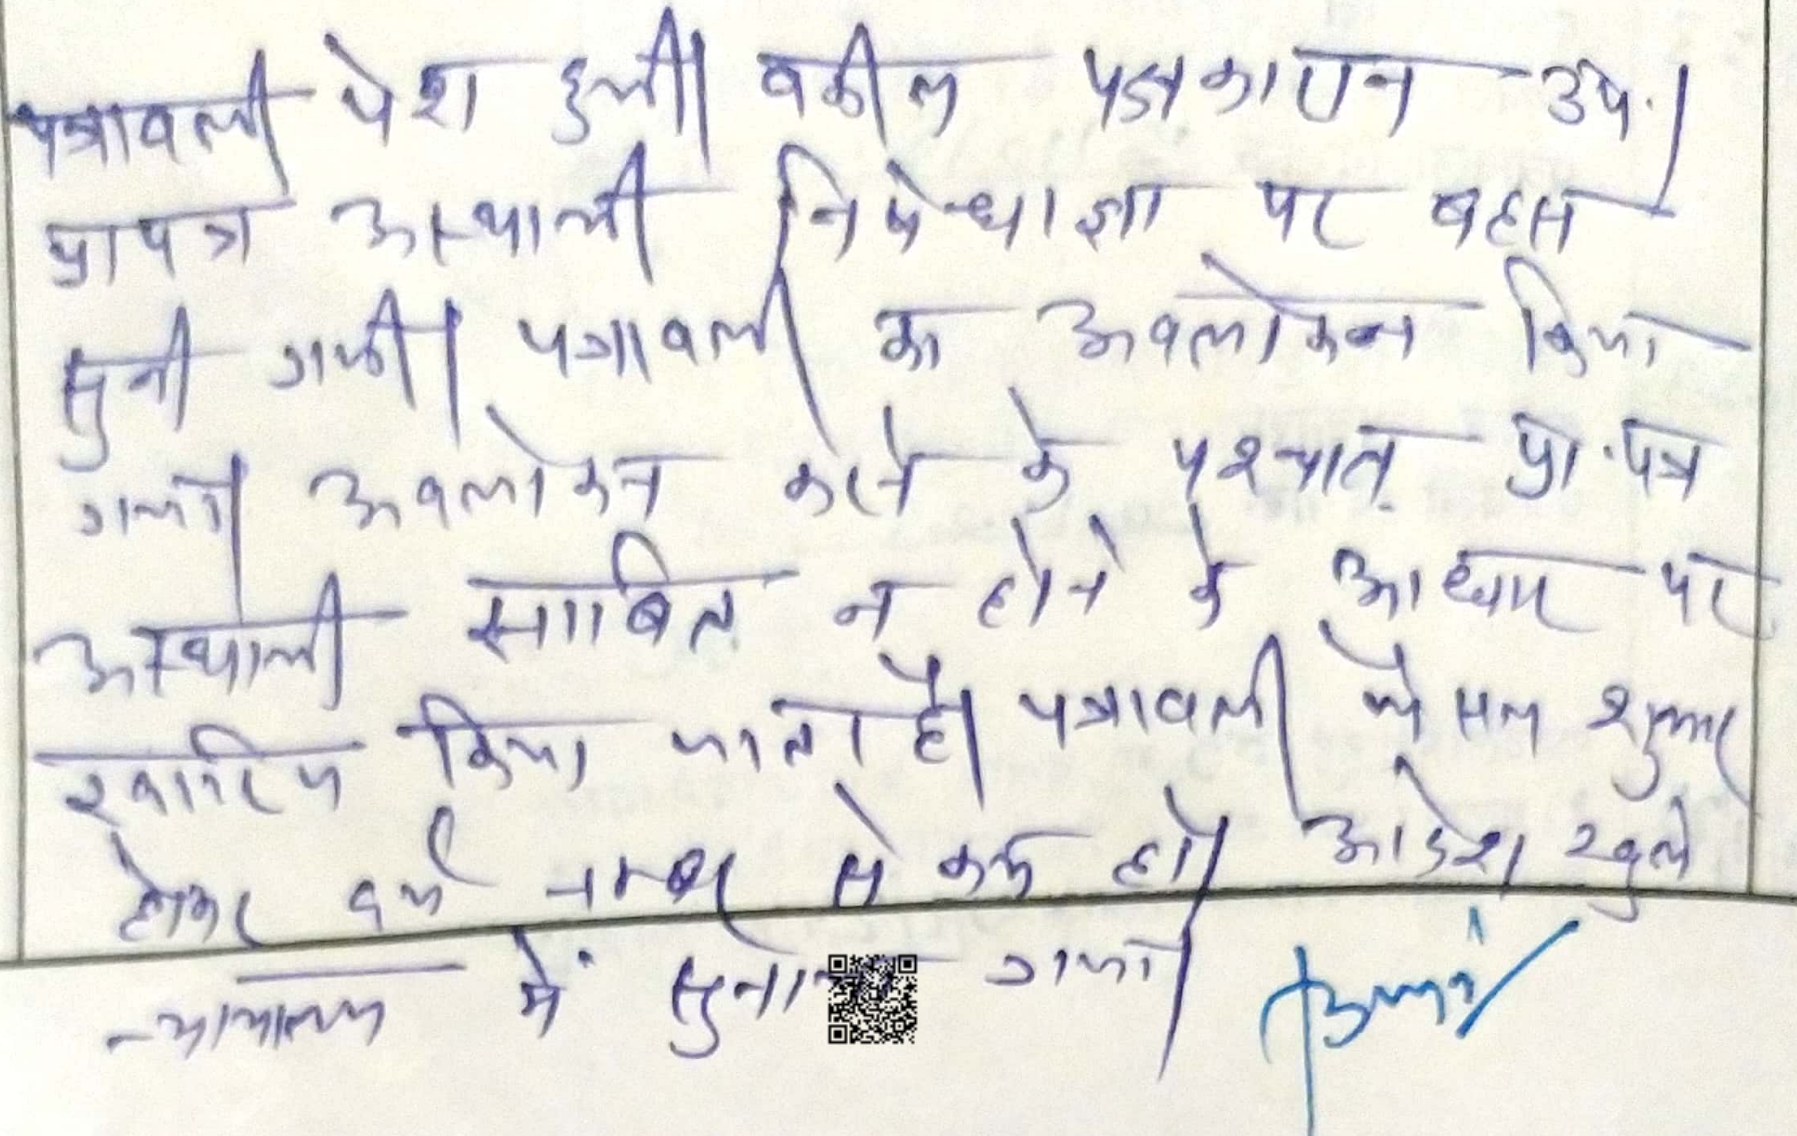 पत्रावली पेश हुयी। वकील पक्षकारान उप.।
प्रा पत्र अस्थायी निषेधाज्ञा पर बहस
सुनी गयी। पत्रावली का अवलोकन किया
गया। अवलोकन करने के पश्चात् प्रा.पत्र
अस्थायी साबित न होने के आधार पर
खारिज किया जाता है। पत्रावली फैसल शुमार
होकर दर्ज नम्बर से कम हो। आदेश खुले
न्यायालय में सुनाया गया।